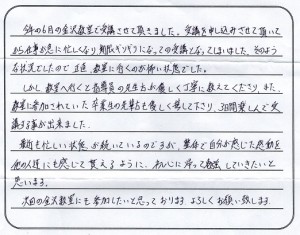 今年の6月の金沢教室で受講させて頂きました。受講を申し込みさせて頂いて
から仕事が急に忙しくなり
な状況でしたので正直、教室に行くのが怖い状態でした。
しかし教室へ行くと指導員の先生もお優しく丁寧に教えてくださり、また
教室に参加されていた卒業生の先輩方も優しく接して下さり、3日間楽しんで受
講する事が出来ました。
最近も忙しい状況が続いているのですが、整体で自分が感じた感動を
他の人達にも感じて貰えるように、初心に帰って勉強していきたいと
思います。
次回の金沢教室にも参加したいと思っております。よろしくお願い致します。